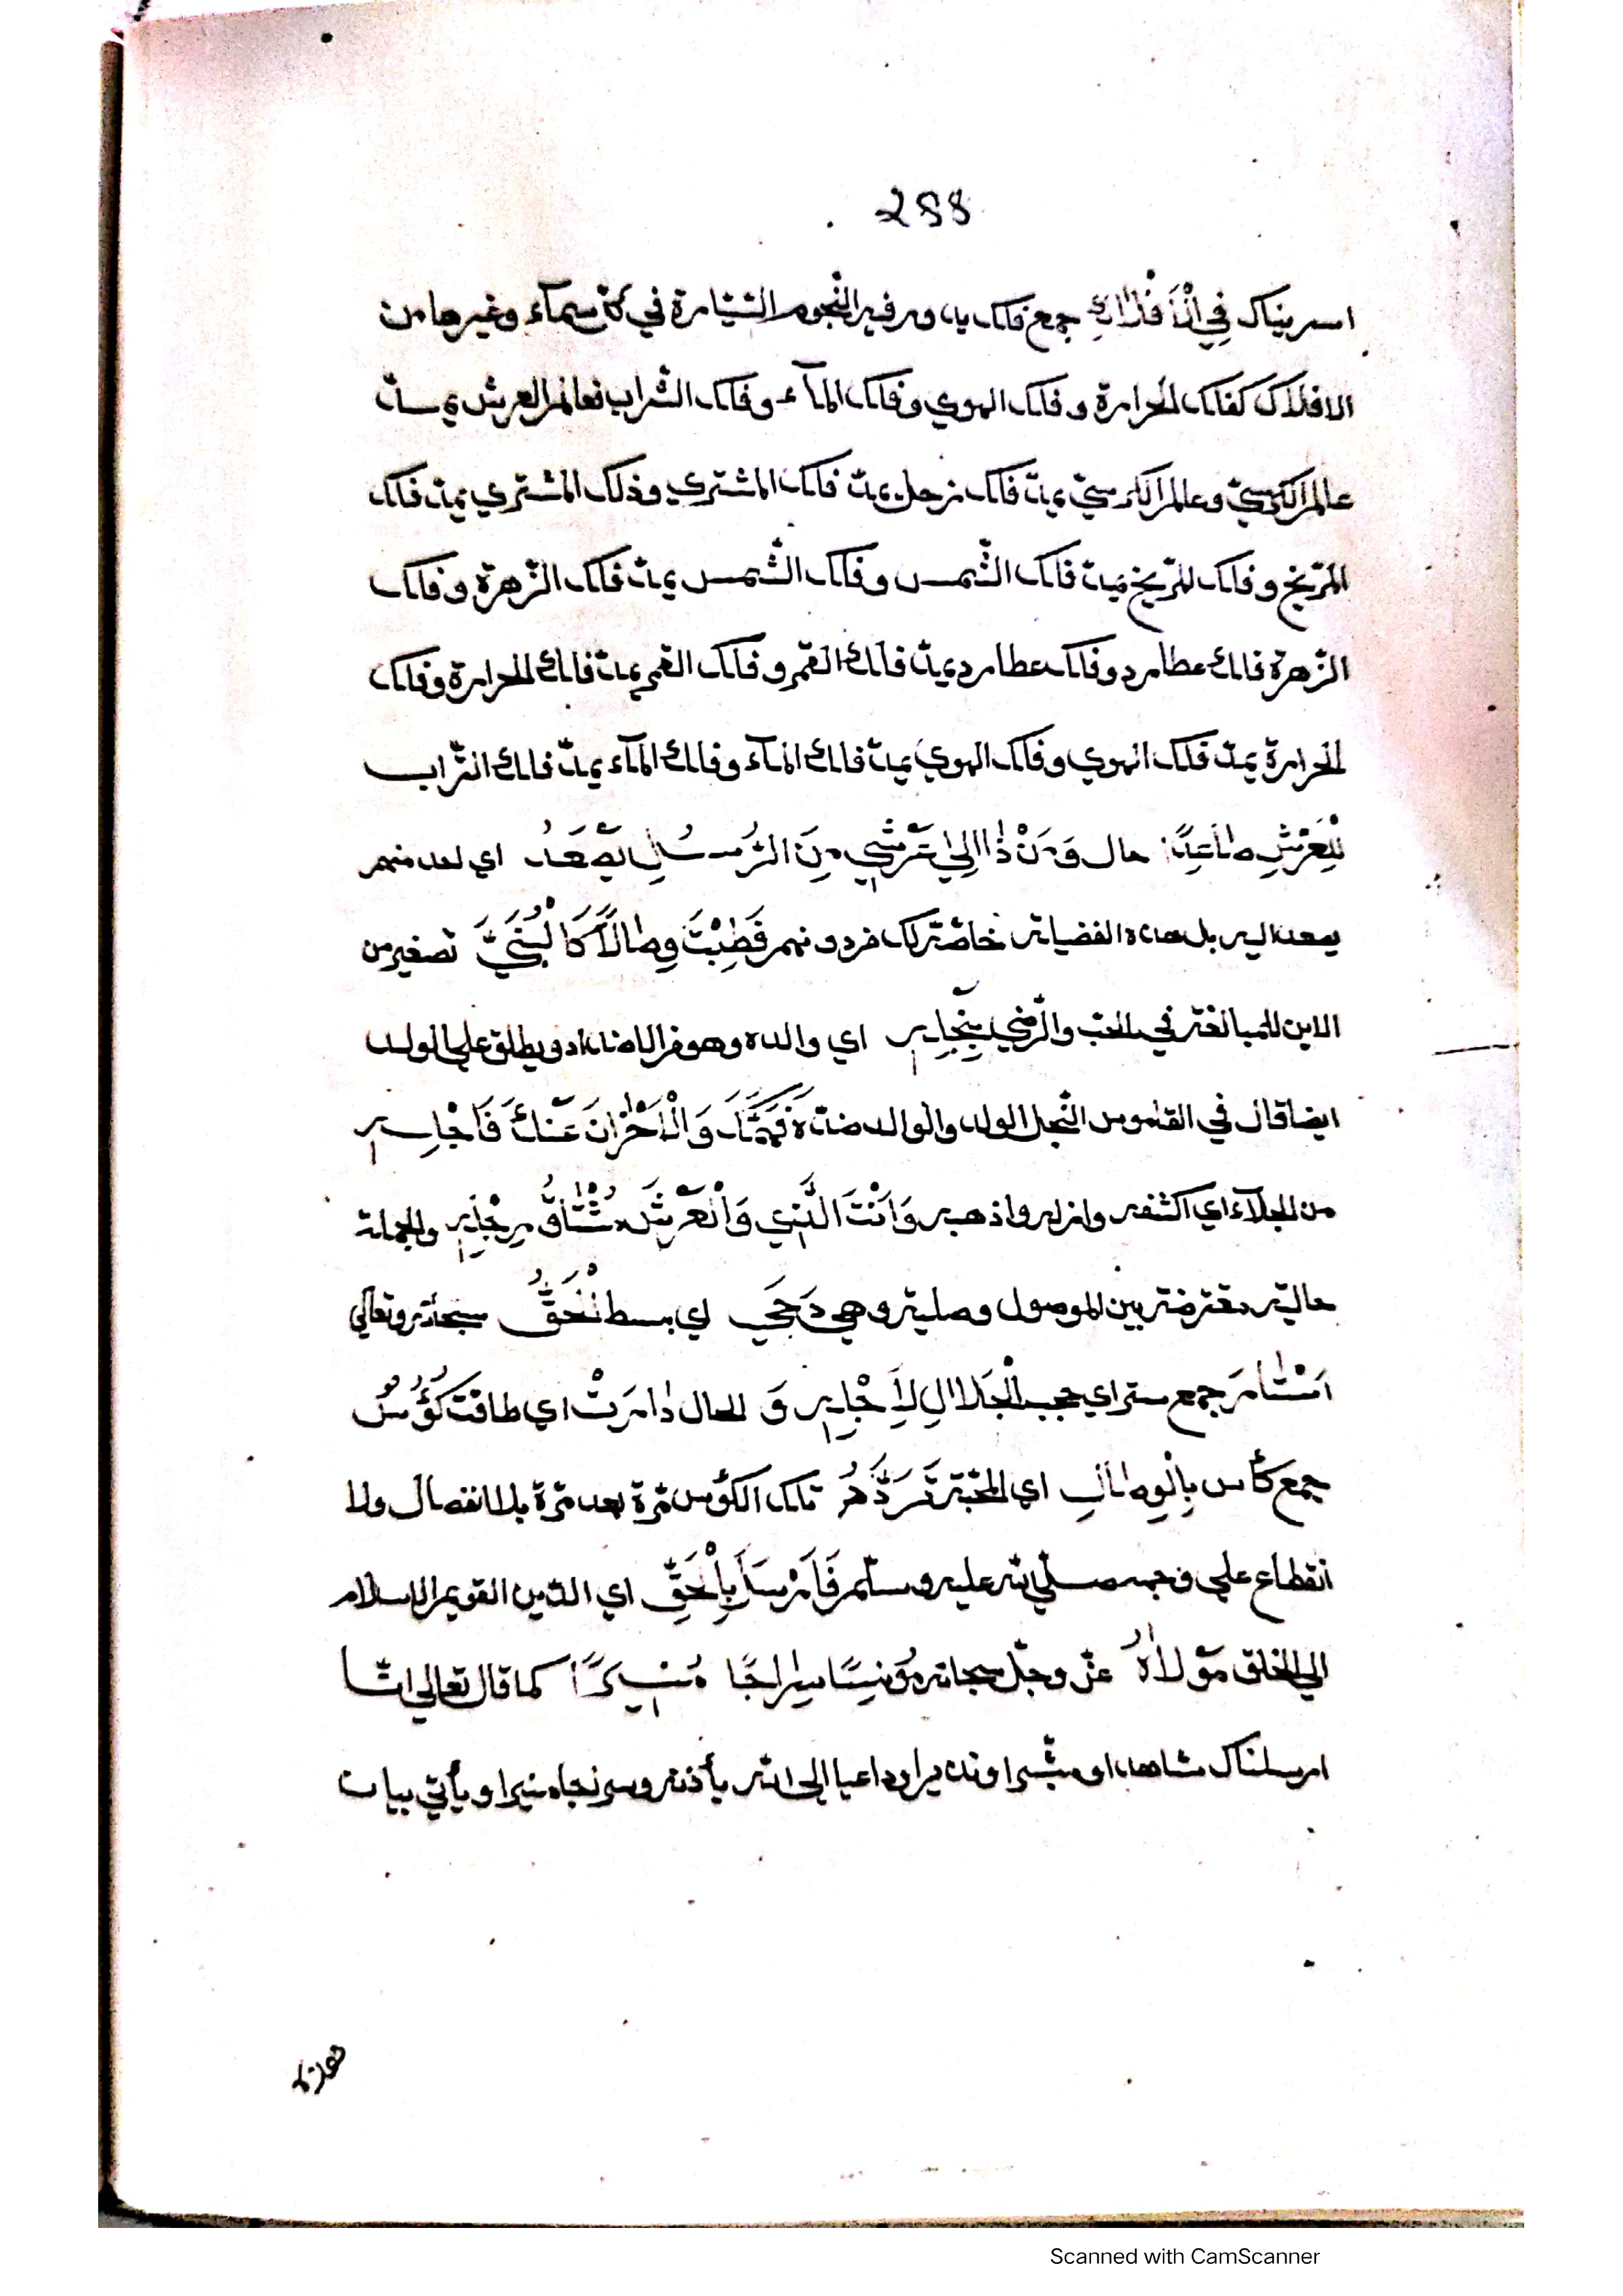 288
اسرينك في الْأَفْلَاكِ جمع فلك يدور فيه النجوم السّيّارة في كل سمآء وغيرها من
الافلاك كفلك الحرارة وفلك الهوي وفلك المآء وفلك التّراب فعالم العرش يمدّ
عالم الكرسيّ وعالم الكرسيّ يمدّ فلك زحل يمدّ فلك المشتري وفلك المشتري يمدّ فلك
المرّيخ وفلك المرّيخ يمدّ فلك الشّمس وفلك الشّمس يمدّ فلك الزّهرة وفلك
الزّهرة فلك عطارد وفلك عطارد يمدّ فلك القمر وفلك القمر يمدّ فلك الحرارة وفلك
الحرارة يمدّ فلك الهوي وفلك الهوي يمدّ فلك المآء وفلك المآء يمدّ فلك التّراب
لِلْعَرْشِ صَاعِدًا حال وَمَنْ ذَا إِلَى عَرْشِي مِنَ الرُّسُلِ يَصْعَدُ اي احد منهم
يصعد اليه بل هذه الفضيلة خاصّة لك فرد منهم فَطِبْتَ وِصَالًا كَالْبُنَيِّ تصغير من
الابن للمبالغة في الحبّ والرّضي بِنَجْلِهِ اي والده وهو من الاضداد ويطلق علي الولد
ايضا قال في القاموس النّجل الولد والوالد ضدّ فَهَمَّكَ وَالْأَحْزَانَ عَنْكَ فَأَجْلِهِ
من الجلآء اي اكشفه وازله واذهبه وَأَنْتَ الَّذِي وَالْعَرْشُ مُشْتَاقُ رِجْلِهِ والجملة
حالية معترضة بين الموصول وصليته وهي دَحَى اي بسط الْحَقُّ سبحانه وتعالي
أَسْتَارَ جمع ستر اي حجب الْجَلَالِ لِأَجْلِهِ وَ الحال دَارَتْ اي طافت كُؤُسُ
جمع كأس بِالْوِصَالِ اي المحبّة تَرَدُّدُ تلك الكؤس مرّة بعد مرّة بلا انفصال ولا
انقطاع علي وجهه صلّي الله عليه وسلّم فَأَرْسَلَ بِالْحَقِّ اي الدّين القويم الاسلام
الي الخلق مَوْلَاهُ عزّ وجلّ سبحانه مُؤنِسًا سِرَاجًا مُنِيرًا كما قال تعالي انّا
ارسلناك شاهدا ومبشّرا ونذيرا وداعيا الي الله بأذنه وسراجا منيرا ويأتي بيان
Scanned with CamScanner